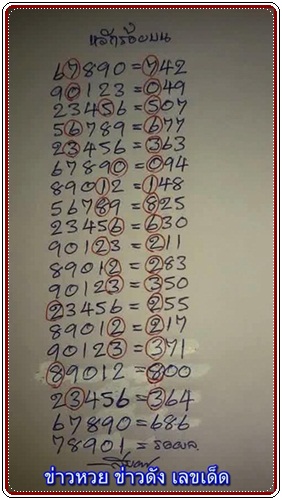 หลักร้อยบน
67890=742
90123=049
23456=507
56789=677
23456=363
67890=094
89012=148
56789=825
23456=630
90123=211
89012=283
90123=350
23456=255
89012=217
90123=371
89012=800
23456=364
67890=686
78901=รอผล.
ข่าวหวย ข่าวดัง เลขเด็ด